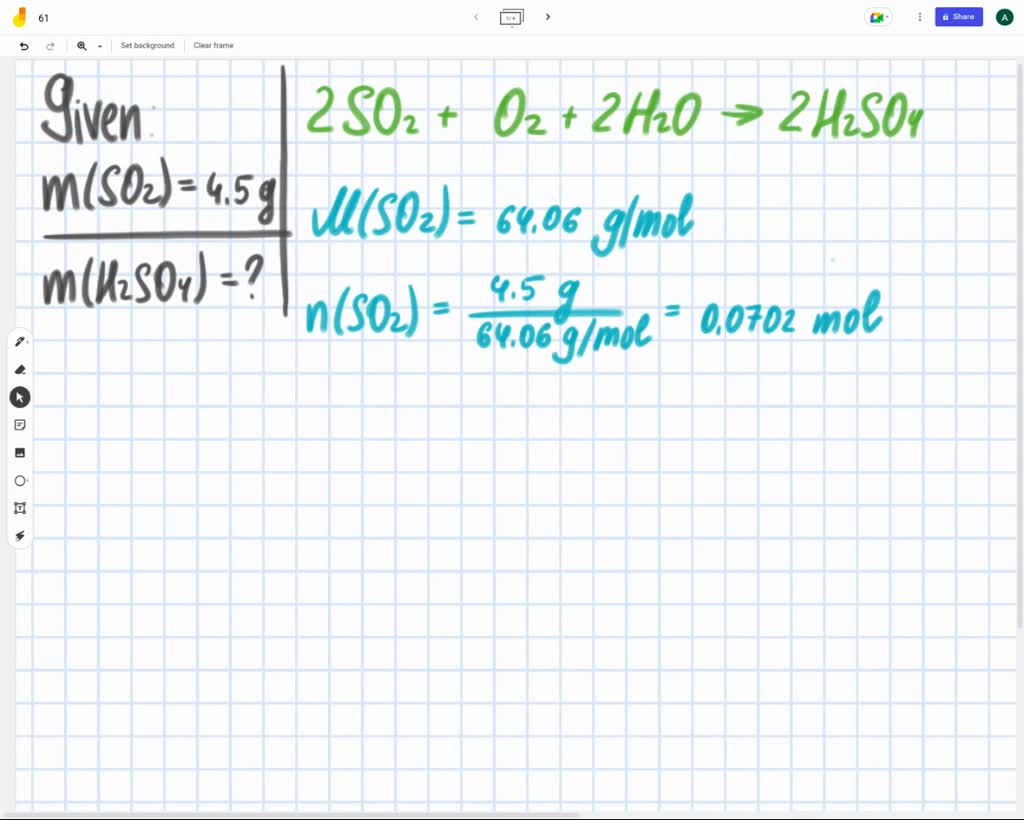 61
1/4
Share
A
Set background
Clear frame
Given:
m(SO₂) = 4.5 g
m(H₂SO₄) = ?
2SO₂ + O₂ + 2H₂O → 2H₂SO₄
M(SO₂) = 64.06 g/mol
n(SO₂) = 4.5 g / 64.06 g/mol = 0.0702 mol